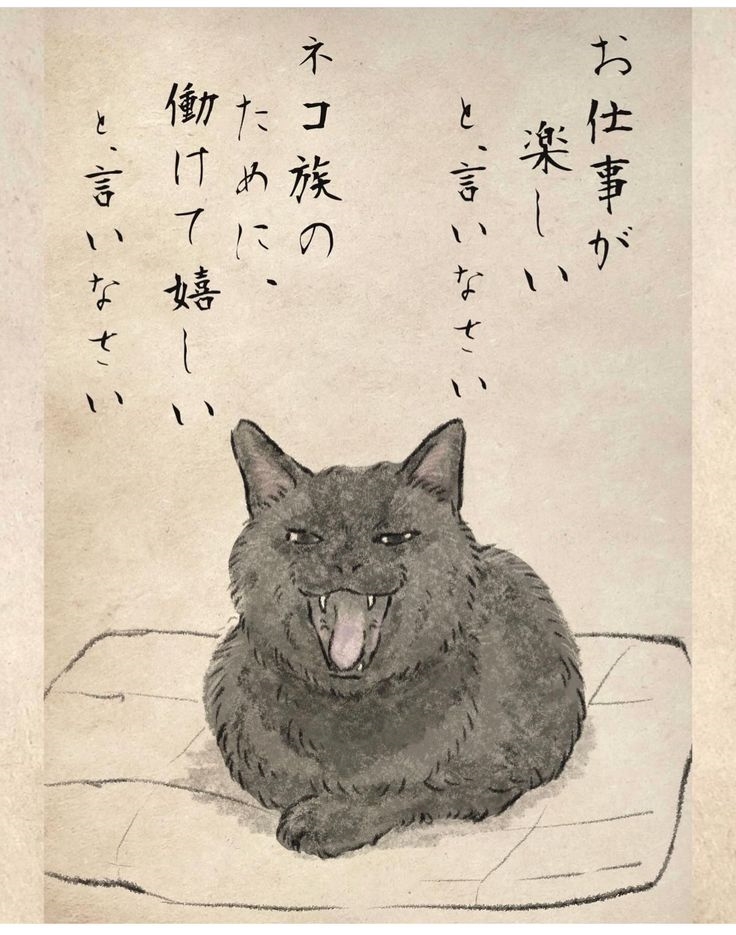 お仕事が
楽しい
と、言いなさい
ネコ族の
ために、
働けて嬉しい
と、言いなさい